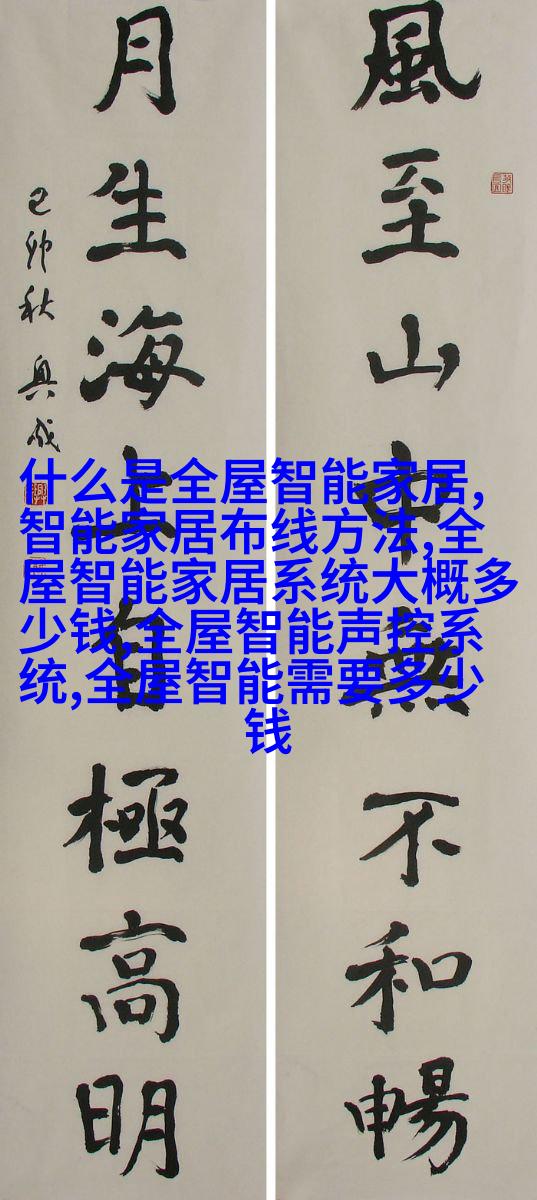 風至山中無不和暢
月生海上自極高明
己卯秋
什么是全屋智能家居,
智能家居布线方法,全
屋智能家居系统大概多
少钱,全屋智能声控系
统,全屋智能需要多少
钱